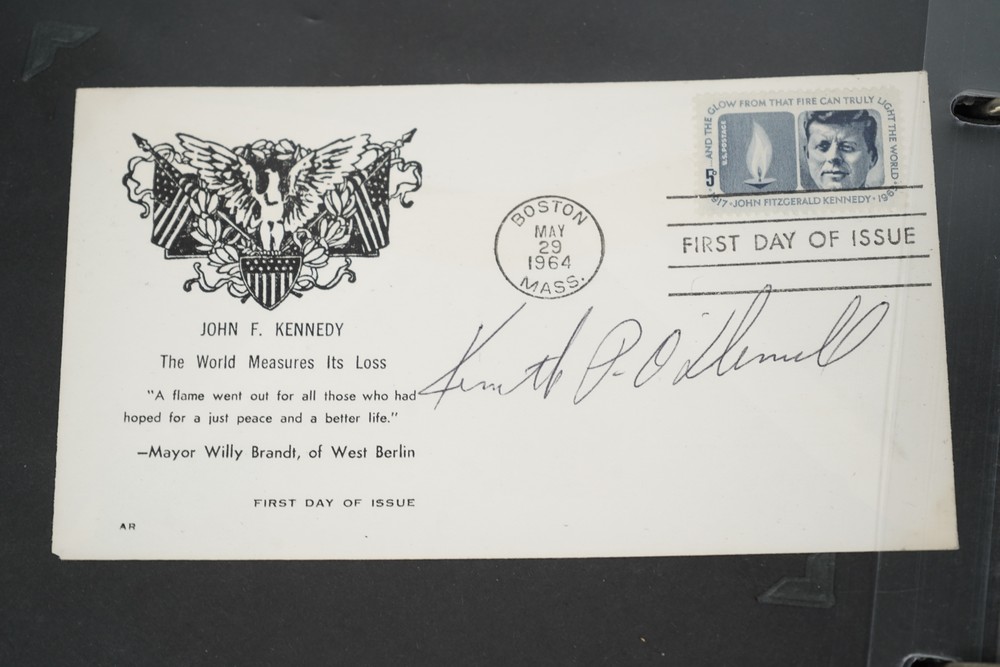 AND THE GLOW FROM THAT FIRE CAN TRULY LIGHT THE WORLD
U.S. POSTAGE
5¢
1917 · JOHN FITZGERALD KENNEDY · 1963
BOSTON
MAY
29
1964
MASS.
FIRST DAY OF ISSUE
JOHN F. KENNEDY
The World Measures Its Loss
"A flame went out for all those who had
hoped for a just peace and a better life."
—Mayor Willy Brandt, of West Berlin
FIRST DAY OF ISSUE
AR
Kenneth P. O'Donnell